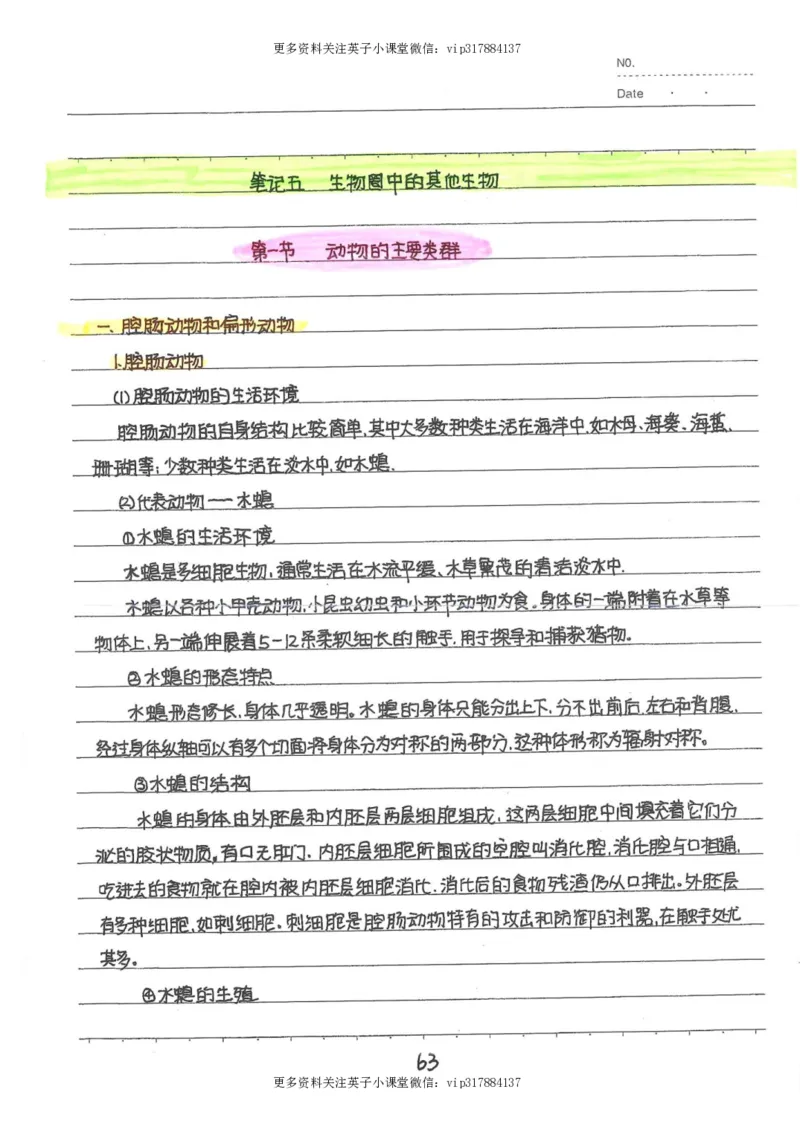 更多资料关注英子小课堂微信：vip317884137
NO.
Date · ·
笔记五 生物圈中的其他生物
第一节 动物的主要类群
一、腔肠动物和扁形动物
1.腔肠动物
(1)腔肠动物的生活环境
腔肠动物的自身结构比较简单,其中大多数种类生活在海洋中,如水母、海葵、海蜇、
珊瑚等;少数种类生活在淡水中,如水螅.
(2)代表动物——水螅
①水螅的生活环境
水螅是多细胞生物,通常生活在水流平缓、水草繁茂的清洁淡水中.
水螅以各种小甲壳动物,小昆虫幼虫和小环节动物为食。身体的一端附着在水草等
物体上,另一端伸展着5-12条柔软细长的触手,用于探寻和捕获猎物。
②水螅的形态特点
水螅形态修长,身体几乎透明。水螅的身体只能分出上下,分不出前后、左右和背腹,
经过身体纵轴可以有多个切面将身体分为对称的两部分,这种体形称为辐射对称。
③水螅的结构
水螅的身体由外胚层和内胚层两层细胞组成,这两层细胞中间填充着它们分
泌的胶状物质。有口无肛门.内胚层细胞所围成的空腔叫消化腔,消化腔与口相通,
吃进去的食物就在腔内被内胚层细胞消化.消化后的食物残渣仍从口排出。外胚层
有多种细胞,如刺细胞.刺细胞是腔肠动物特有的攻击和防御的利器,在触手处尤
其多。
④水螅的生殖
63
更多资料关注英子小课堂微信：vip317884137